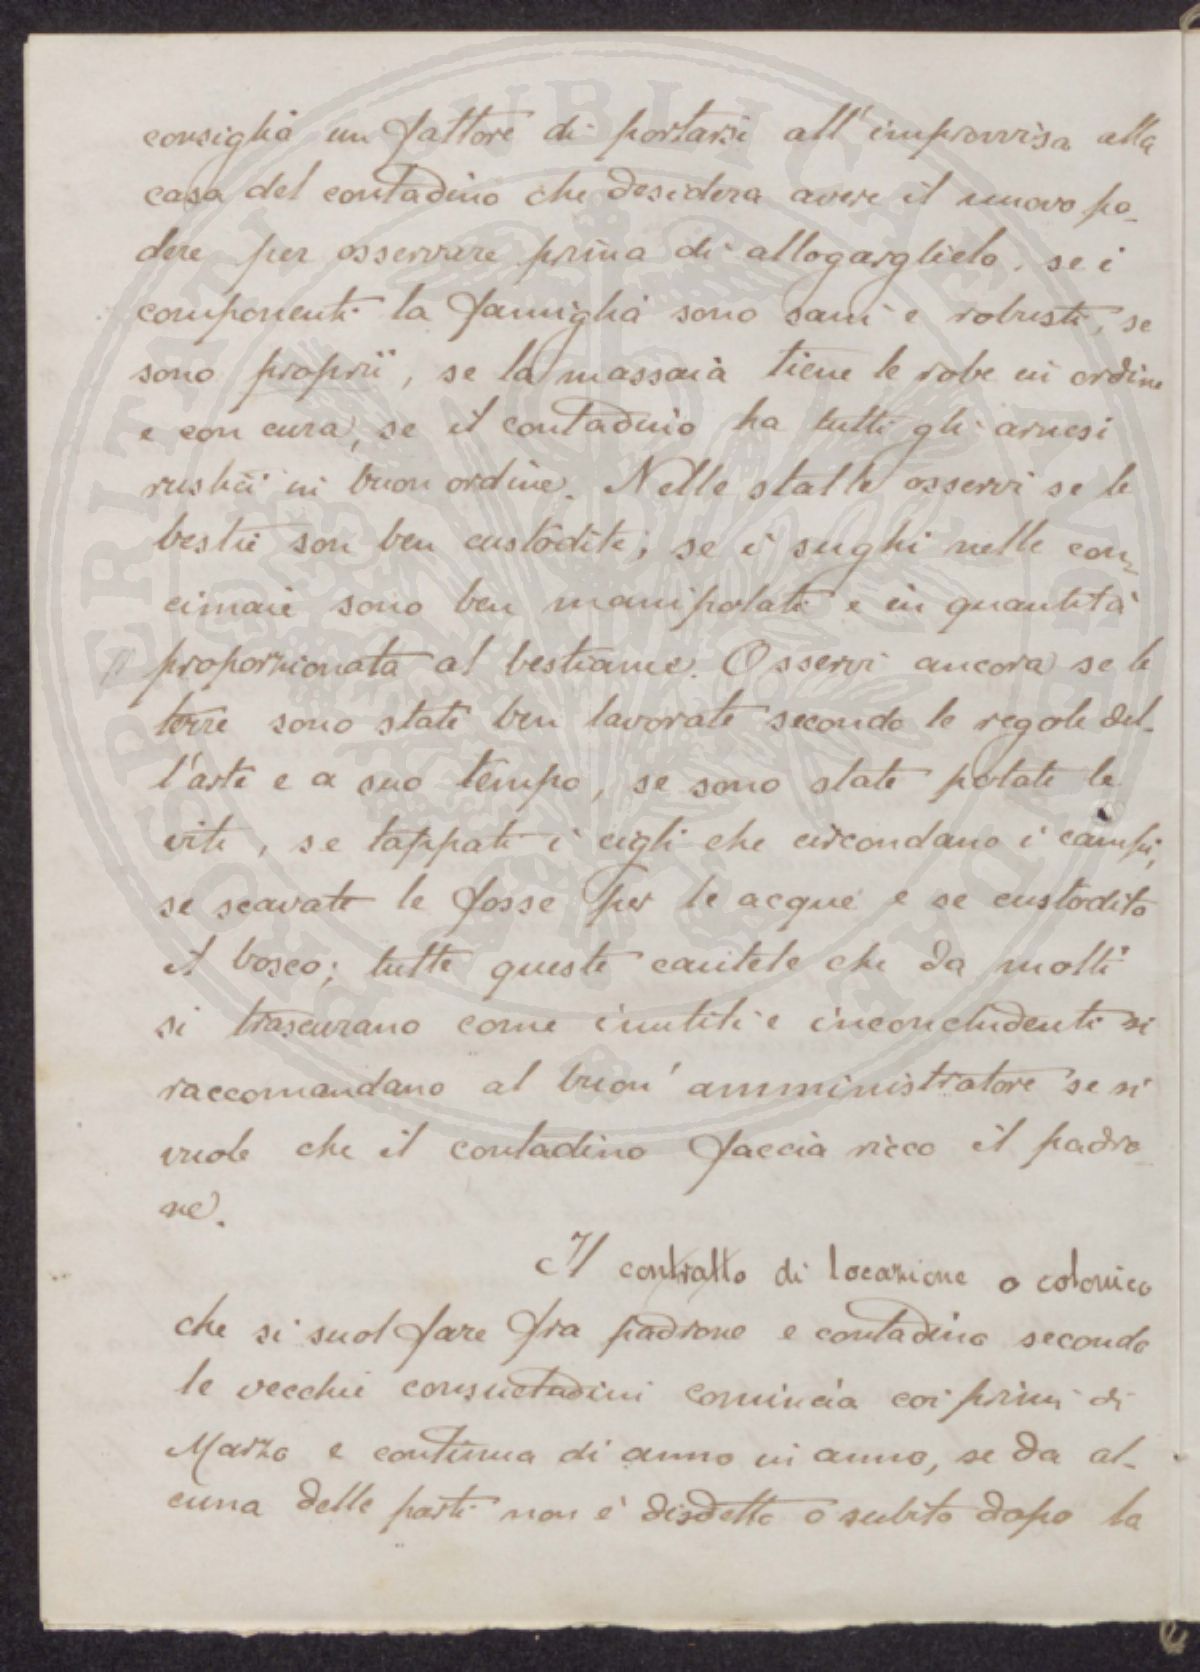 consiglia un fattore di portarsi all'improvvisa alla
casa del contadino che desidera avere il nuovo po-
dere per osservare prima di allogarglielo, se i
componenti la famiglia sono sani e robusti, se
sono proprii, se la massaia tiene le robe in ordine
e con cura, se il contadino ha tutti gli arnesi
rustici in buon ordine. Nelle stalle osservi se le
bestie son ben custodite; se i sughi nelle con-
cimaie sono ben manipolati e in quantità
proporzionata al bestiame. Osservi ancora se le
terre sono state ben lavorate secondo le regole del-
l'arte e a suo tempo, se sono state potate le
viti, se tappati i cigli che circondano i campi,
se scavate le fosse per le acque e se custodito
il bosco; tutte queste cautele che da molti
si trascurano come inutili e inconcludenti si
raccomandano al buon' amministratore se si
vuole che il contadino faccia ricco il padro-
ne.
Il contratto di locazione o colonico
che si suol fare fra padrone e contadino secondo
le vecchie consuetudini comincia coi primi di
Marzo e continua di anno in anno, se da al-
cuna delle parti non è disdetto o subito dopo la
PROSPERITATI PUBLICAE AUGENDAE